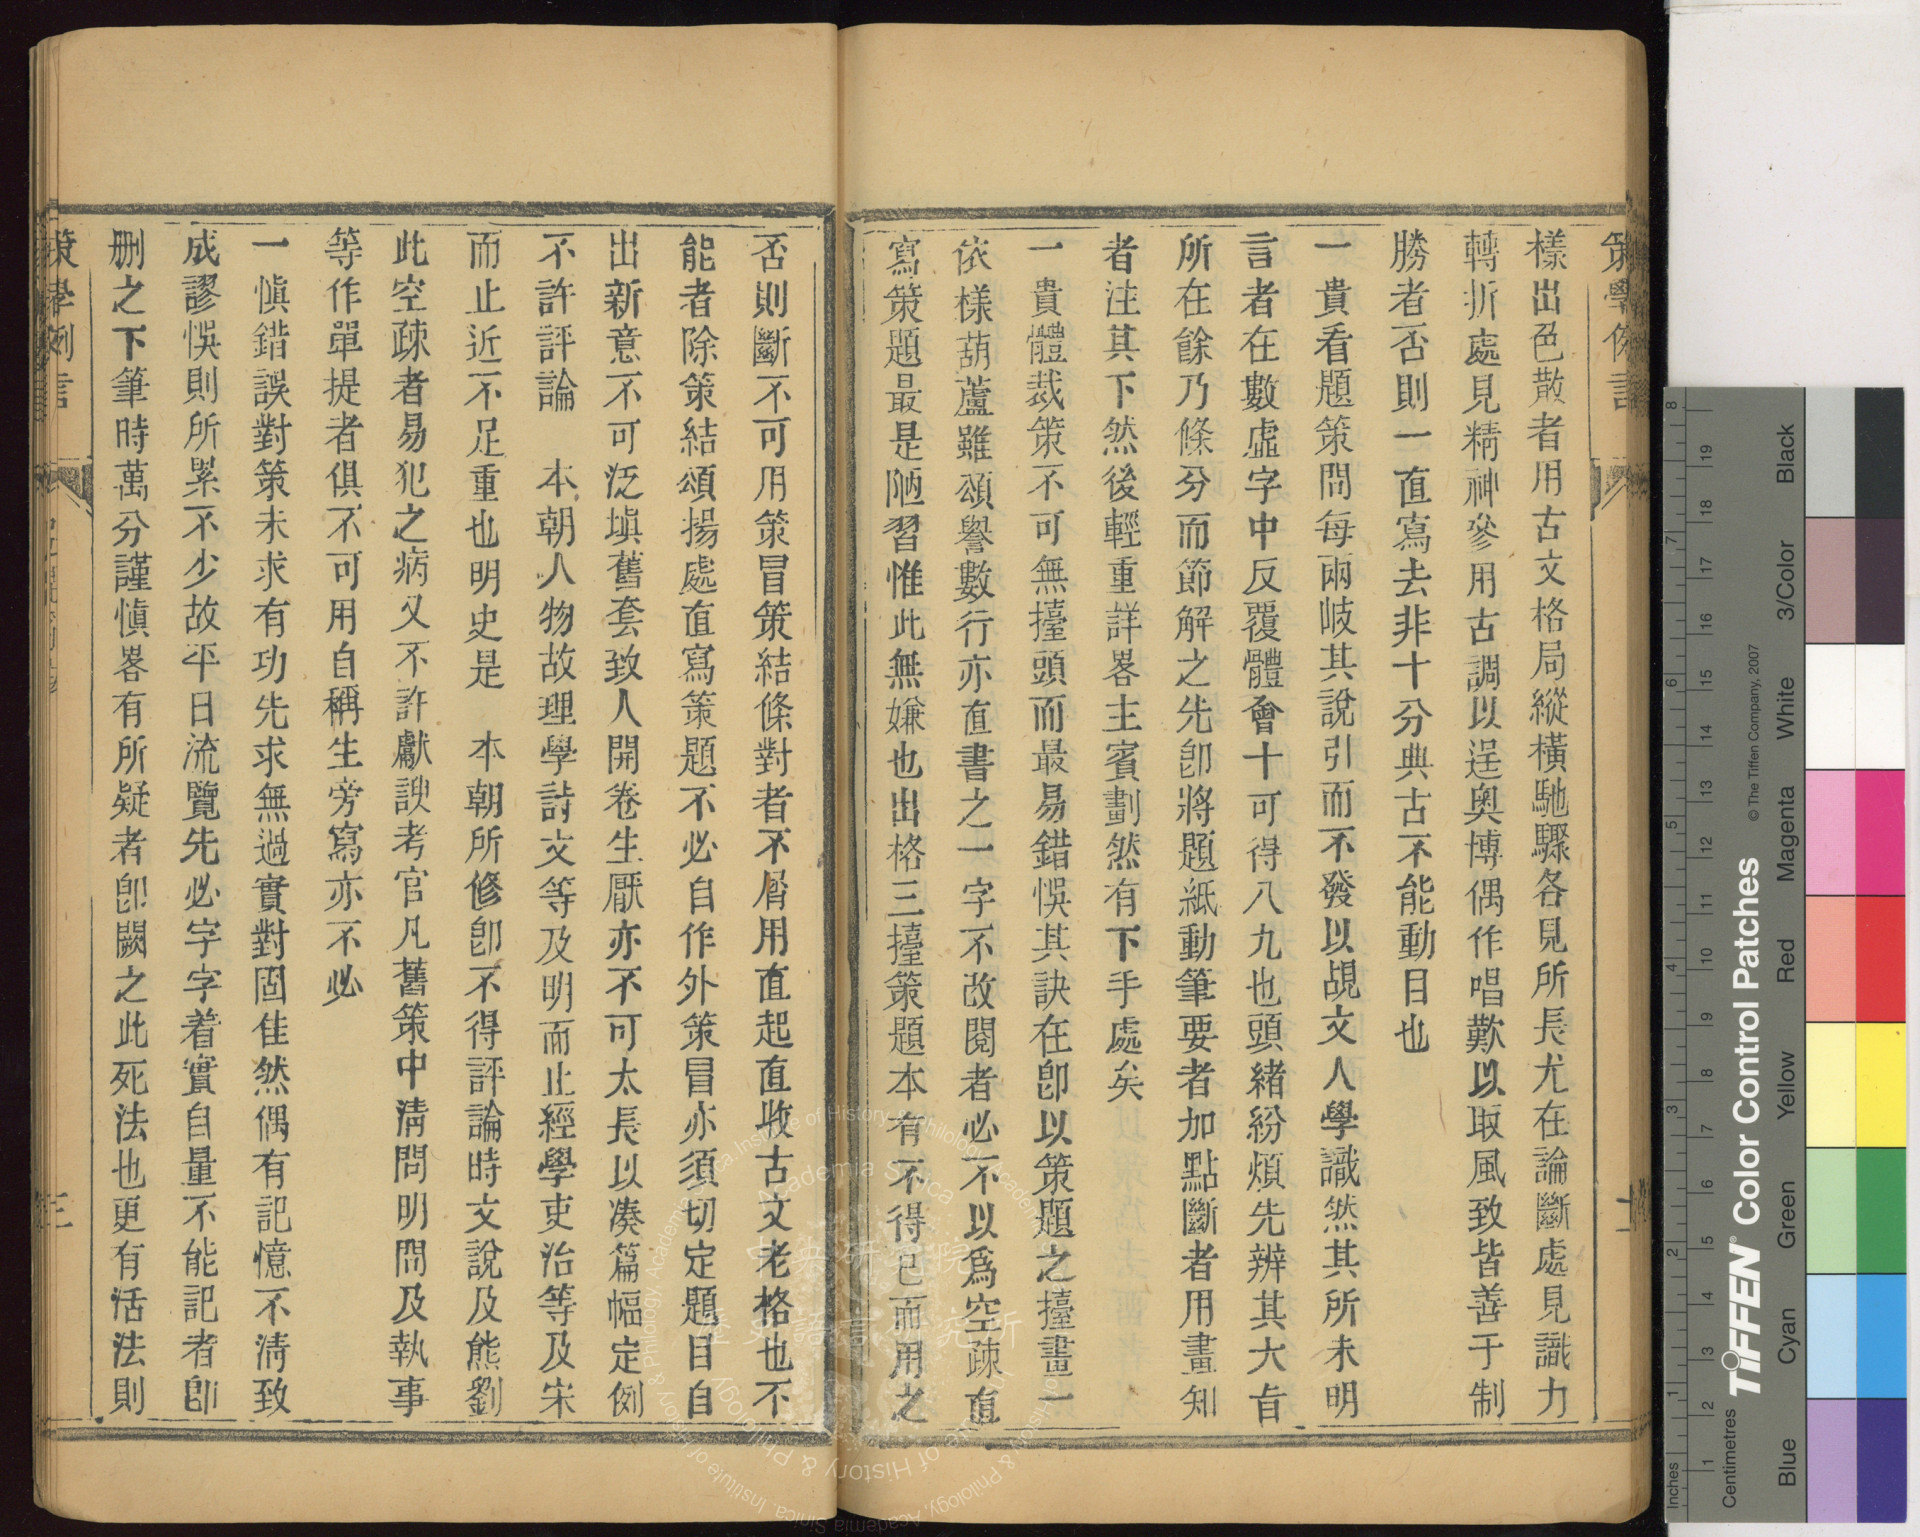 策學例言
二
樣出色散者用古文格局縱橫馳驟各見所長尤在論斷處見識力
轉折處見精神參用古調以逞奧博偶作唱歎以取風致皆善于制
勝者否則一直寫去非十分典古不能動目也
一貴看題策問每兩岐其說引而不發以覘文人學識然其所未明
言者在數虛字中反覆體會十可得八九也頭緒紛煩先辨其大旨
所在餘乃條分而節解之先卽將題紙動筆要者加點斷者用畫知
者注其下然後輕重詳畧主賓劃然有下手處矣
一貴體裁策不可無擡頭而最易錯悞其訣在卽以策題之擡畫一
依樣葫蘆雖頌譽數行亦直書之一字不改閱者必不以爲空疎直
寫策題最是陋習惟此無嫌也出格三擡策題本有不得已而用之
否則斷不可用策冒策結條對者不屑用直起直收古文老格也不
能者除策結頌揚處直寫策題不必自作外策冒亦須切定題目自
出新意不可泛塡舊套致人開卷生厭亦不可太長以湊篇幅定例
不許評論　本朝人物故理學詩文等及明而止經學吏治等及宋
而止近不足重也明史是　本朝所修卽不得評論時文說及熊劉
此空疎者易犯之病又不許獻諛考官凡舊策中淸問明問及執事
等作單提者俱不可用自稱生旁寫亦不必
一愼錯誤對策未求有功先求無過實對固佳然偶有記憶不淸致
成謬悞則所累不少故平日流覽先必字字着實自量不能記者卽
删之下筆時萬分謹愼畧有所疑者卽闕之此死法也更有活法則
策學例言
三
Academia Sinica
Institute of History & Philology, Academia Sinica
中央研究院
歷史語言研究所
Inches
1 2 3 4 5 6 7 8
Centimetres
1 2 3 4 5 6 7 8 9 10 11 12 13 14 15 16 17 18 19
TIFFEN® Color Control Patches
© The Tiffen Company, 2007
Blue Cyan Green Yellow Red Magenta White 3/Color Black